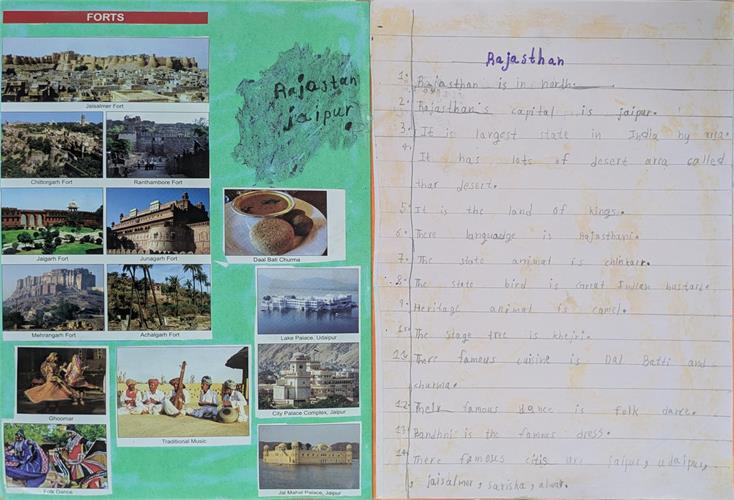 FORTS
Jaisalmer Fort
Chittorgarh Fort
Ranthambore Fort
Jaigarh Fort
Junagarh Fort
Mehrangarh Fort
Achalgarh Fort
Ghoomar
Traditional Music
Folk Dance
Rajastan
jaipur.
Daal Bati Churma
Lake Palace, Udaipur
City Palace Complex, Jaipur
Jal Mahal Palace, Jaipur
Rajasthan
1. Rajasthan is in north.
2. Rajasthan's capital is jaipur.
3. It is largest state in India by area.
4.
It has lots of desert area called
thar desert.
5. It is the land of kings.
6. There languadge is Rajasthani.
7. The state animal is chinkara.
8. The state bird is Great Indian bustard.
9. Heritage animal is camel.
10. The stage tree is khejri.
There famous cuisine is Dal Batti and
churma.
12. Their famous dance is folk dance.
13. Bandhni is the famous dress.
14. There famoses citis are jaipur, udaipur,
jaisalmer, sariska, alwar.